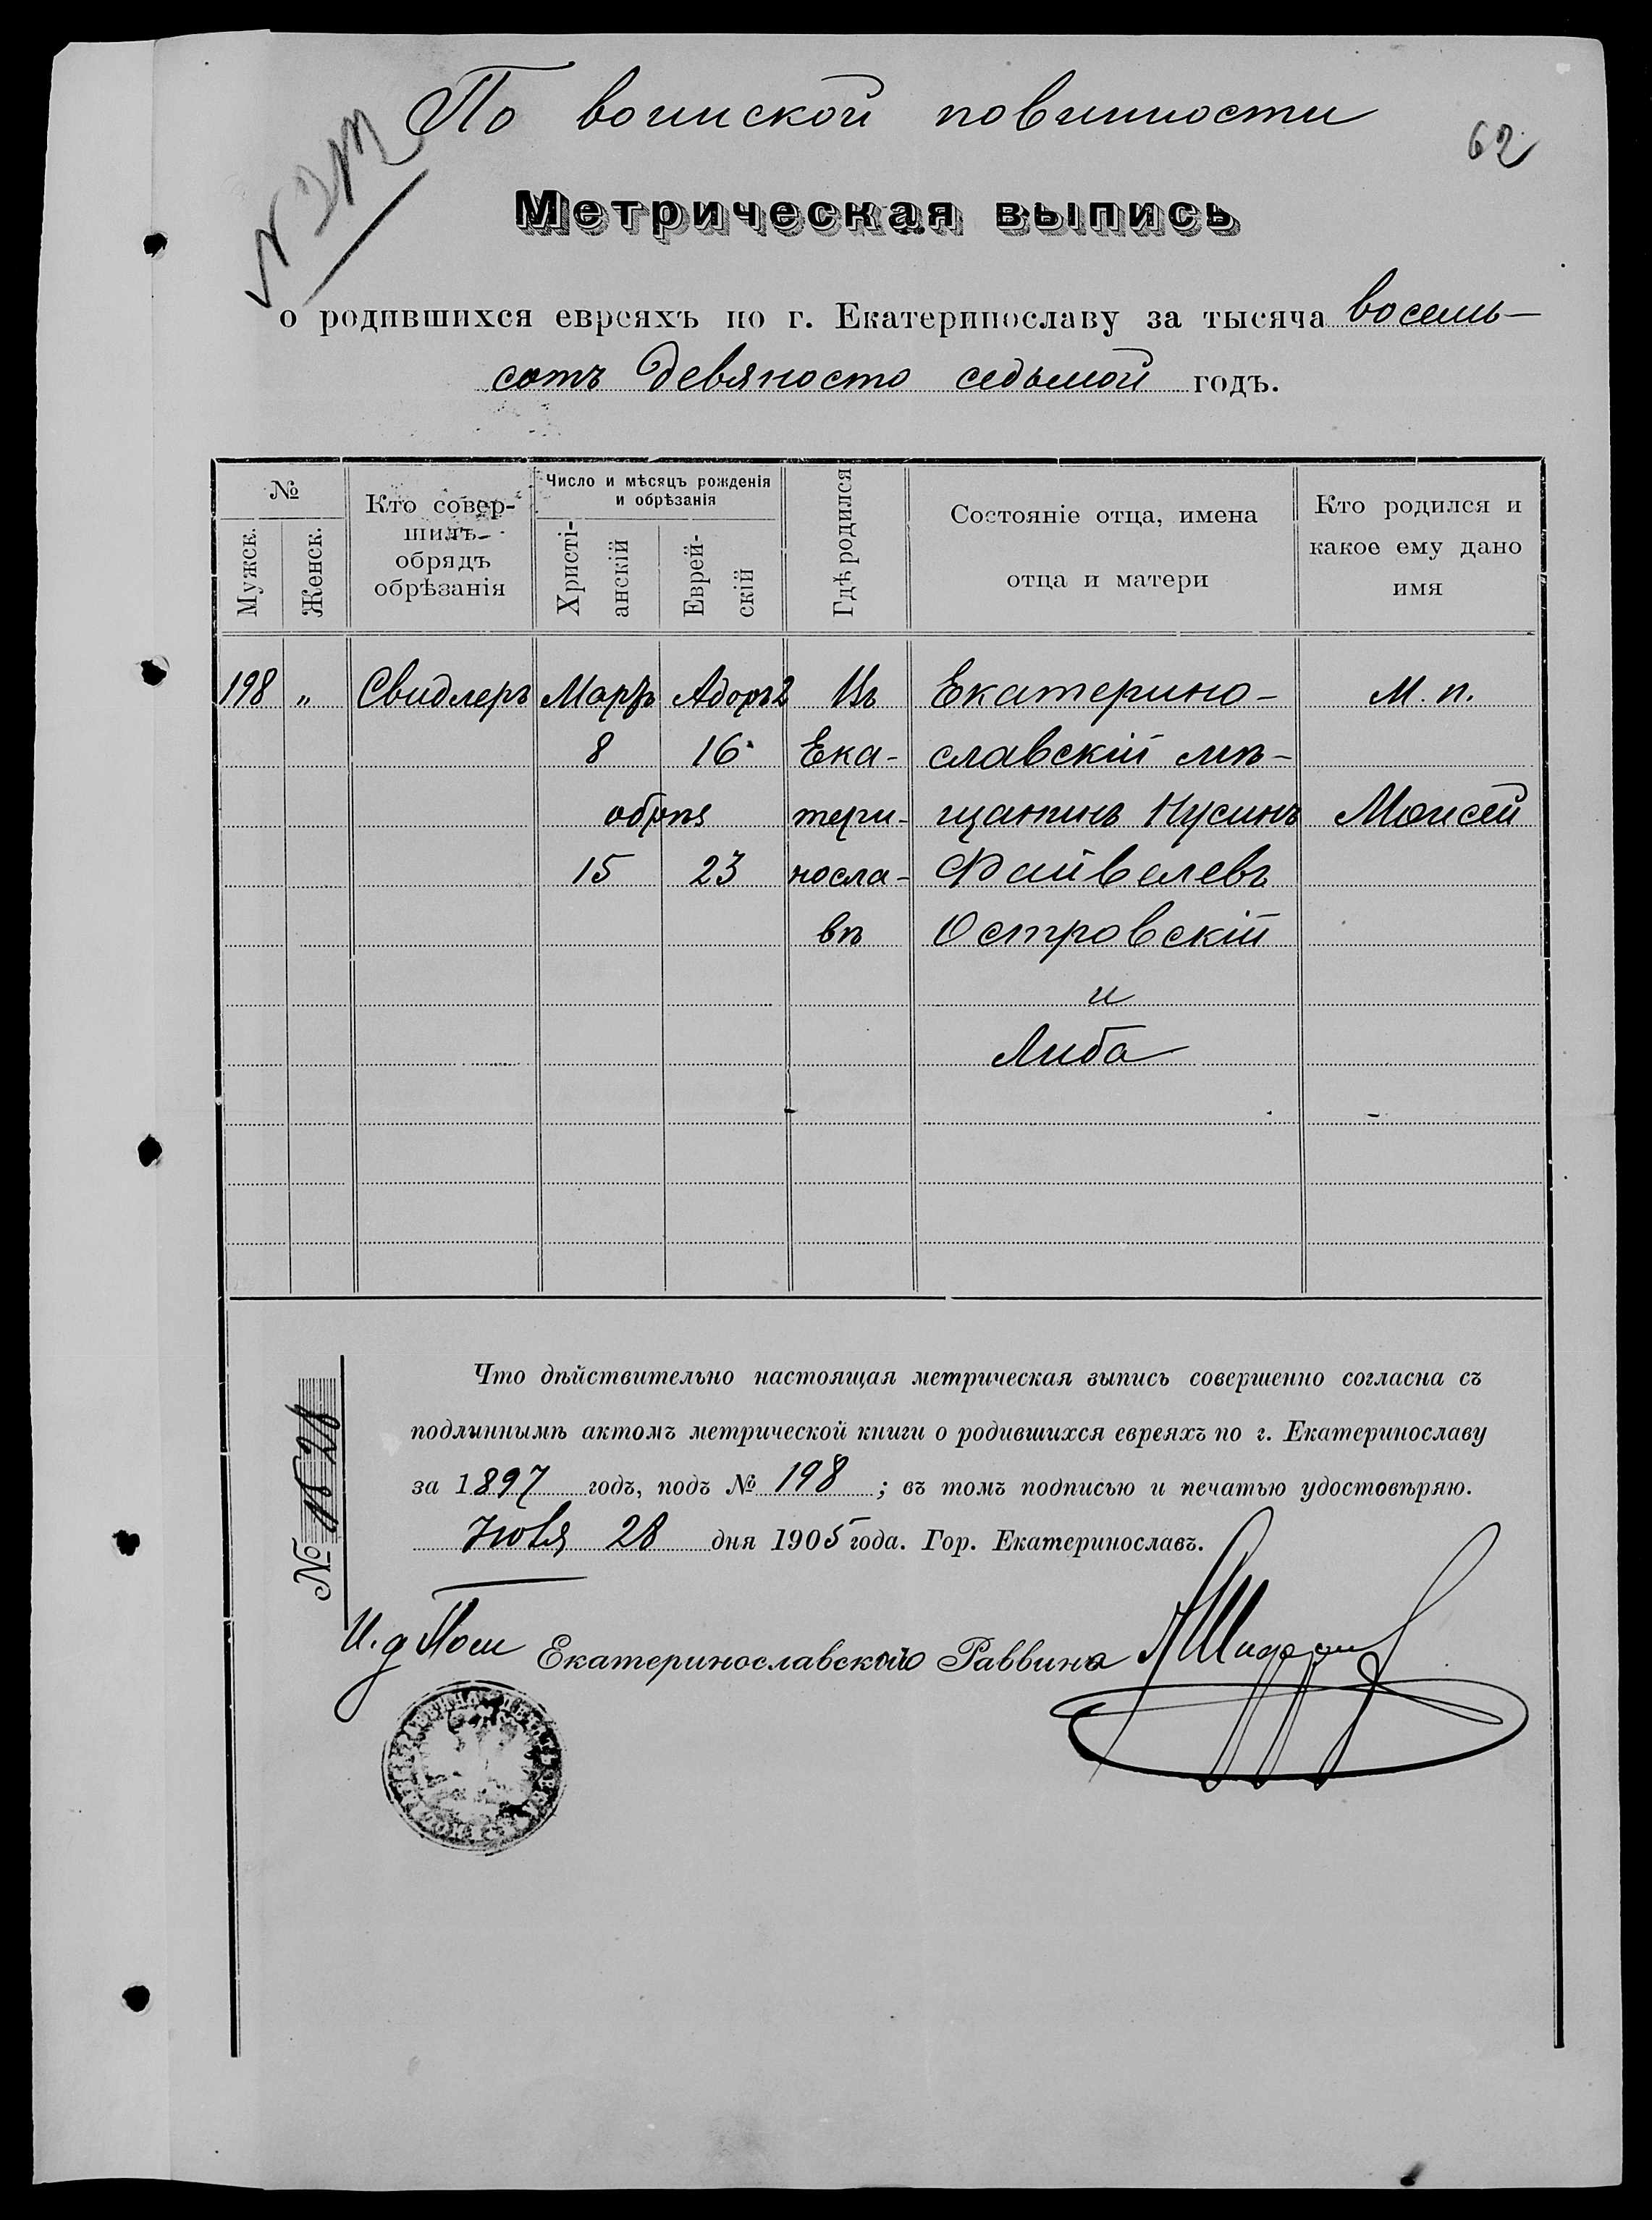 По воинской повинности
62
Метрическая выпись
о родившихся евреяхъ по г. Екатеринославу за тысяча восемь-
сотъ девяносто седьмой годъ.
№
Мужск.
Женск.
Кто совер-
шилъ
обрядъ
обрѣзанія
Число и мѣсяцъ рожденія
и обрѣзанія
Христі-
анскій
Еврей-
скій
Гдѣ родился
Состояніе отца, имена
отца и матери
Кто родился и
какое ему дано
имя
198 „ Свидлеръ Мартъ Адоръ 2 Въ Екатерино- М. п.
8 16 Ека- славскій мѣ-
обрѣз тери- щанинъ Нусинъ Моисей
15 23 носла- Файвелевъ
вѣ Островскій
и
Либа
Что дѣйствительно настоящая метрическая выпись совершенно согласна съ
подлиннымъ актомъ метрической книги о родившихся евреяхъ по г. Екатеринославу
за 1897 годъ, подъ № 198 ; въ томъ подписью и печатью удостовѣряю.
28 дня 1905 года. Гор. Екатеринославъ.
№
И. д. Пом Екатеринославского Раввина